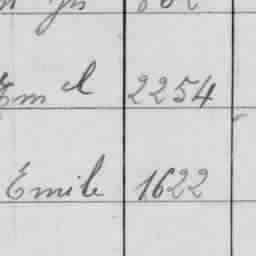 Em el 2254
Emile 1622